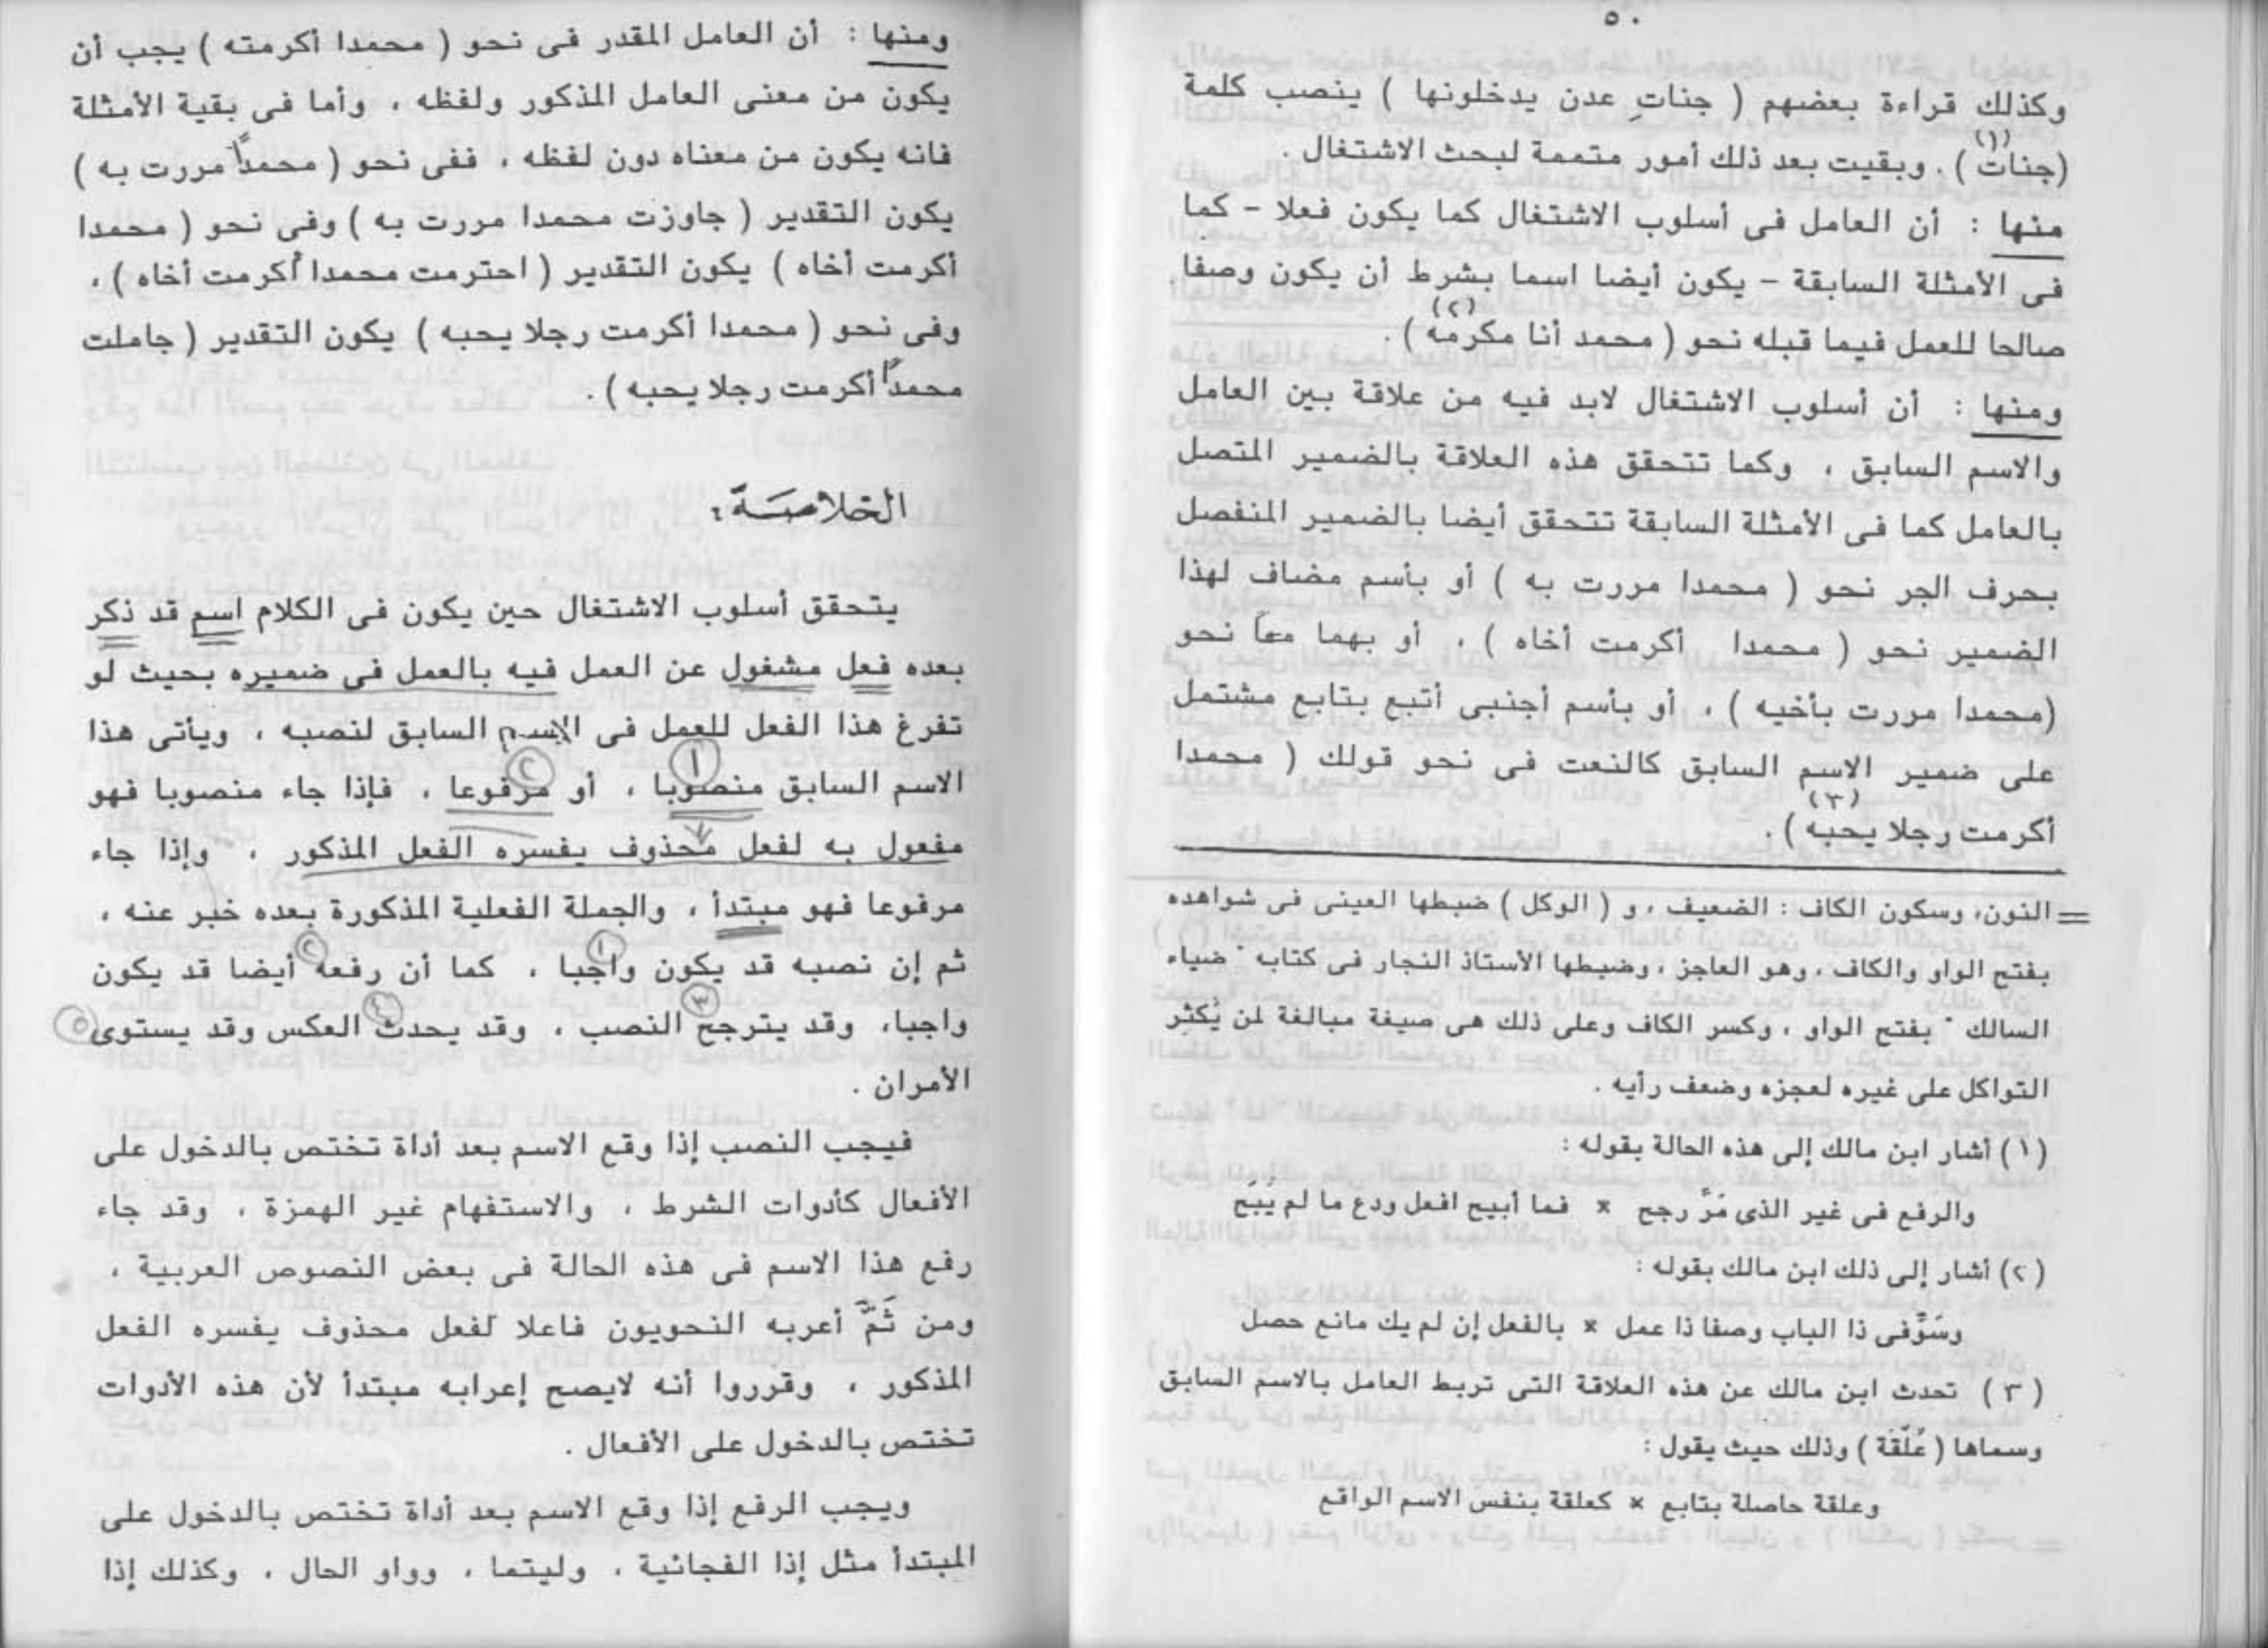 ٥٠
وكذلك قراءة بعضهم ( جناتِ عدن يدخلونها ) ينصب كلمة
(جنات (١) ) . وبقيت بعد ذلك أمور متممة لبحث الاشتغال .
منها : أن العامل فى أسلوب الاشتغال كما يكون فعلا - كما
فى الأمثلة السابقة - يكون أيضا اسما بشرط أن يكون وصفا
صالحا للعمل فيما قبله نحو ( محمد أنا مكرمه (٢) ) .
ومنها : أن أسلوب الاشتغال لابد فيه من علاقة بين العامل
والاسم السابق ، وكما تتحقق هذه العلاقة بالضمير المتصل
بالعامل كما فى الأمثلة السابقة تتحقق أيضا بالضمير المنفصل
بحرف الجر نحو ( محمدا مررت به ) أو بأسم مضاف لهذا
الضمير نحو ( محمدا أكرمت أخاه ) ، أو بهما معاً نحو
(محمدا مررت بأخيه ) ، أو بأسم أجنبى أتبع بتابع مشتمل
على ضمير الاسم السابق كالنعت فى نحو قولك ( محمدا
أكرمت رجلا يحبه (٣) ) .
= النون، وسكون الكاف : الضعيف ، و ( الوكل ) ضبطها العينى فى شواهده
بفتح الواو والكاف ، وهو العاجز ، وضبطها الأستاذ النجار فى كتابه " ضياء
السالك " بفتح الواو ، وكسر الكاف وعلى ذلك هى صيغة مبالغة لمن يُكثِر
التواكل على غيره لعجزه وضعف رأيه .
(١) أشار ابن مالك إلى هذه الحالة بقوله :
والرفع فى غير الذى مَرَّ رجح × فما أبيح افعل ودع ما لم يُبَح
(٢) أشار إلى ذلك ابن مالك بقوله :
وسَوِّفى ذا الباب وصفا ذا عمل × بالفعل إن لم يك مانع حصل
(٣) تحدث ابن مالك عن هذه العلاقة التى تربط العامل بالاسم السابق
وسماها ( عُلْقَة ) وذلك حيث يقول :
وعلقة حاصلة بتابع × كعلقة بنفس الاسم الواقع
ومنها : أن العامل المقدر فى نحو ( محمدا أكرمته ) يجب أن
يكون من معنى العامل المذكور ولفظه ، وأما فى بقية الأمثلة
فانه يكون من معناه دون لفظه ، ففى نحو ( محمداً مررت به )
يكون التقدير ( جاوزت محمدا مررت به ) وفى نحو ( محمدا
أكرمت أخاه ) يكون التقدير ( احترمت محمدا أكرمت أخاه ) ،
وفى نحو ( محمدا أكرمت رجلا يحبه ) يكون التقدير ( جاملت
محمداً أكرمت رجلا يحبه ) .
الخلاصة :
يتحقق أسلوب الاشتغال حين يكون فى الكلام اسم قد ذكر
بعده فعل مشغول عن العمل فيه بالعمل فى ضميره بحيث لو
تفرغ هذا الفعل للعمل فى الاسم السابق لنصبه ، ويأتى هذا
الاسم السابق منصوبا ١ ، أو مرفوعا ٢ ، فإذا جاء منصوبا فهو
مفعول به لفعل محذوف يفسره الفعل المذكور ، وإذا جاء
مرفوعا فهو مبتدأ ، والجملة الفعلية المذكورة بعده خبر عنه ،
ثم إن نصبه قد يكون واجبا ١ ، كما أن رفعه ٢ أيضا قد يكون
واجبا، وقد يترجح ٣ النصب ، وقد يحدث ٤ العكس وقد يستوى ٥
الأمران .
فيجب النصب إذا وقع الاسم بعد أداة تختص بالدخول على
الأفعال كأدوات الشرط ، والاستفهام غير الهمزة ، وقد جاء
رفع هذا الاسم فى هذه الحالة فى بعض النصوص العربية ،
ومن ثَمَّ أعربه النحويون فاعلا لفعل محذوف يفسره الفعل
المذكور ، وقرروا أنه لايصح إعرابه مبتدأ لأن هذه الأدوات
تختص بالدخول على الأفعال .
ويجب الرفع إذا وقع الاسم بعد أداة تختص بالدخول على
المبتدأ مثل إذا الفجائية ، وليتما ، وواو الحال ، وكذلك إذا